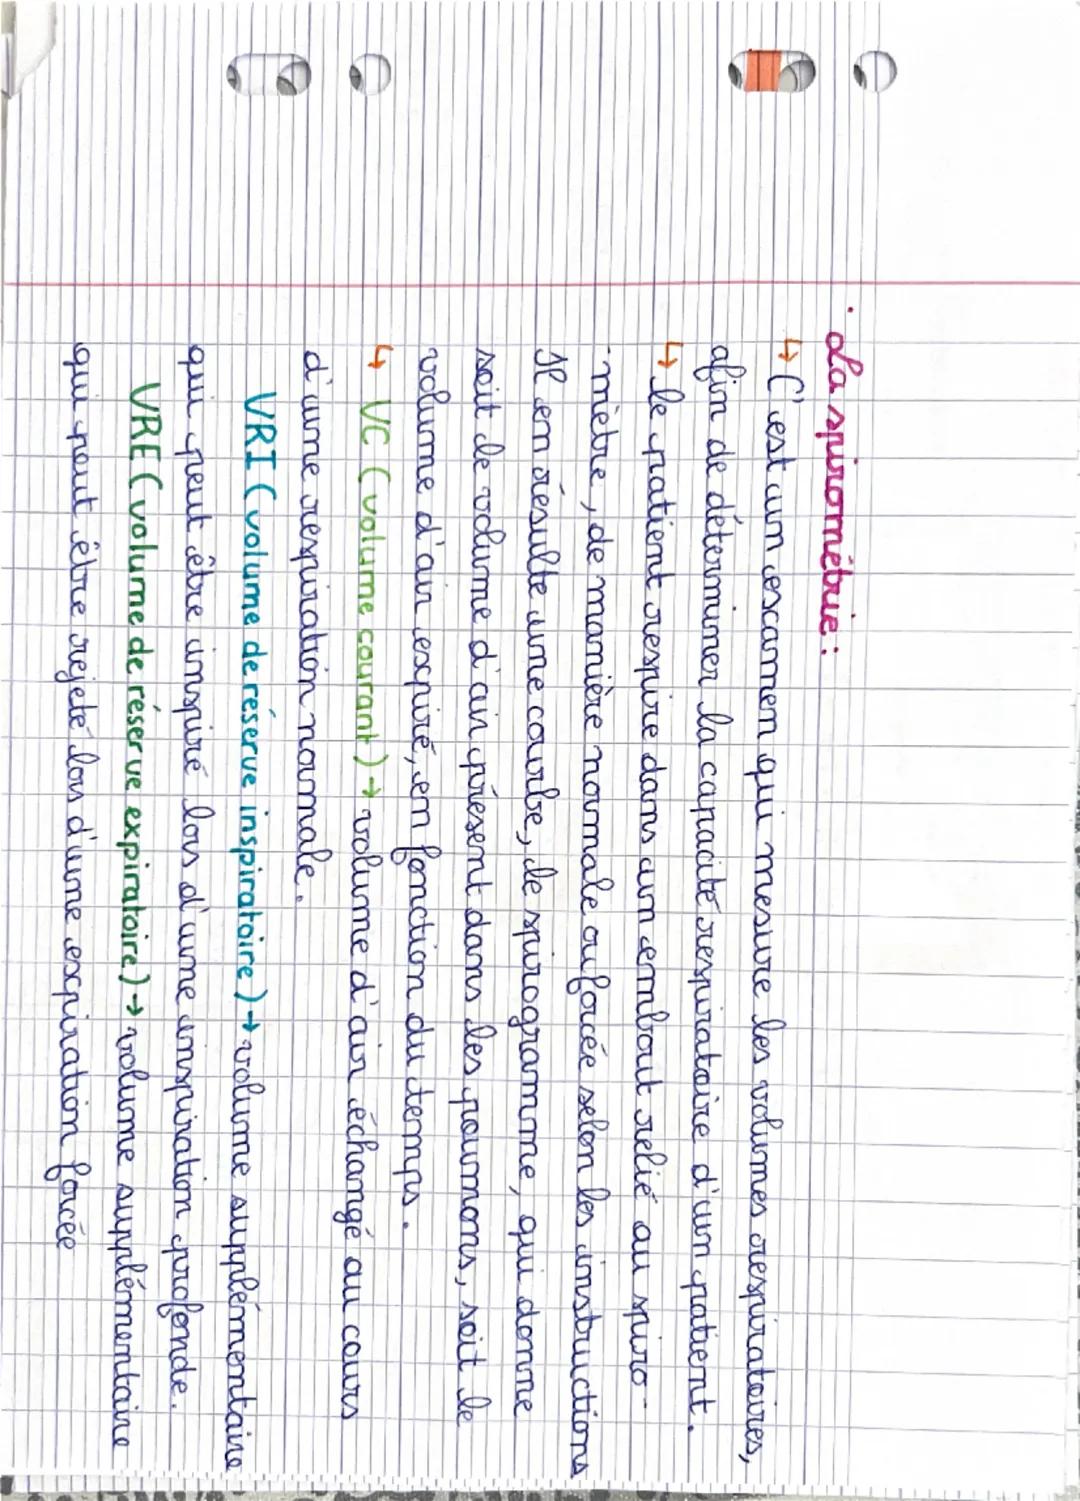 · La spirométrie :
↳ C'est un examen qui mesure les volumes respiratoires,
afin de déterminer la capacité respiratoire d'un patient.
↳ le patient respire dans un embout relié au spiro-
-mètre, de manière normale ou forcée selon les instructions
Il en résulte une courbe, le spirogramme, qui donne
soit le volume d'air présent dans les poumons, soit le
volume d'air expiré, en fonction du temps.
↳ VC (volume courant) → volume d'air échangé au cours
d'une respiration normale.
VRI (volume de réserve inspiratoire) → volume supplémentaire
qui peut être inspiré lors d'une inspiration profonde.
VRE (volume de réserve expiratoire) → volume supplémentaire
qui peut être rejeté lors d'une expiration forcée